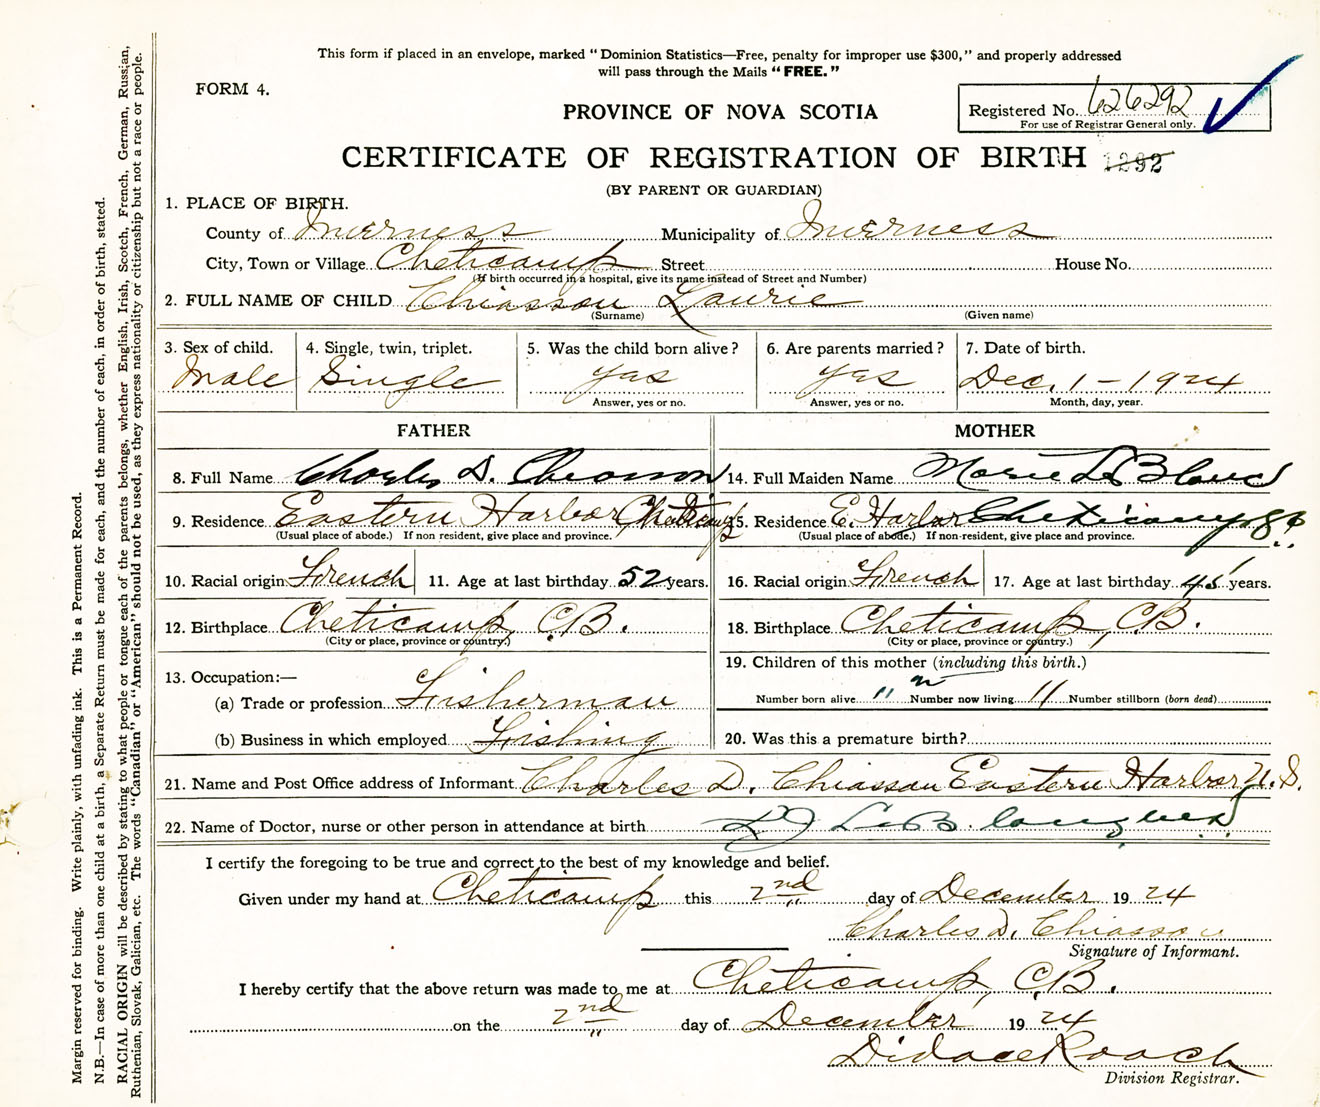 This form if placed in an envelope, marked "Dominion Statistics—Free, penalty for improper use $300," and properly addressed
will pass through the Mails "FREE."
FORM 4.
PROVINCE OF NOVA SCOTIA
Registered No. 626292
For use of Registrar General only.
CERTIFICATE OF REGISTRATION OF BIRTH 1292
(BY PARENT OR GUARDIAN)
1. PLACE OF BIRTH.
County of Inverness Municipality of Inverness
City, Town or Village Cheticamp Street House No.
(If birth occurred in a hospital, give its name instead of Street and Number)
2. FULL NAME OF CHILD Chiasson Laurie
(Surname) (Given name)
3. Sex of child. 4. Single, twin, triplet. 5. Was the child born alive? 6. Are parents married? 7. Date of birth.
Male Single yes yes Dec. 1 - 1924
Answer, yes or no. Answer, yes or no. Month, day, year.
FATHER MOTHER
8. Full Name Charles D. Chiasson 14. Full Maiden Name Marie LeBlanc
9. Residence Eastern Harbor Cheticamp 15. Residence E. Harbor Cheticamp
(Usual place of abode.) If non resident, give place and province. (Usual place of abode.) If non-resident, give place and province.
10. Racial origin French 11. Age at last birthday 52 years. 16. Racial origin French 17. Age at last birthday 45 years.
12. Birthplace Cheticamp, C.B. 18. Birthplace Cheticamp, C.B.
(City or place, province or country.) (City or place, province or country.)
13. Occupation:— 19. Children of this mother (including this birth.)
(a) Trade or profession Fisherman Number born alive 11 Number now living 11 Number stillborn (born dead)
(b) Business in which employed Fishing 20. Was this a premature birth?
21. Name and Post Office address of Informant Charles D. Chiasson Eastern Harbor N.S.
22. Name of Doctor, nurse or other person in attendance at birth
I certify the foregoing to be true and correct to the best of my knowledge and belief.
Given under my hand at Cheticamp this 2nd day of December 1924
Charles D. Chiasson
Signature of Informant.
I hereby certify that the above return was made to me at Cheticamp, C.B.
on the 2nd day of December 1924
Didace Roach
Division Registrar.
Margin reserved for binding. Write plainly, with unfading ink. This is a Permanent Record.
N.B.—In case of more than one child at a birth, a Separate Return must be made for each, and the number of each, in order of birth, stated.
RACIAL ORIGIN will be described by stating to what people or tongue each of the parents belongs, whether English, Irish, Scotch, French, German, Russian,
Ruthenian, Slovak, Galician, etc. The words "Canadian" or "American" should not be used, as they express nationality or citizenship but not a race or people.